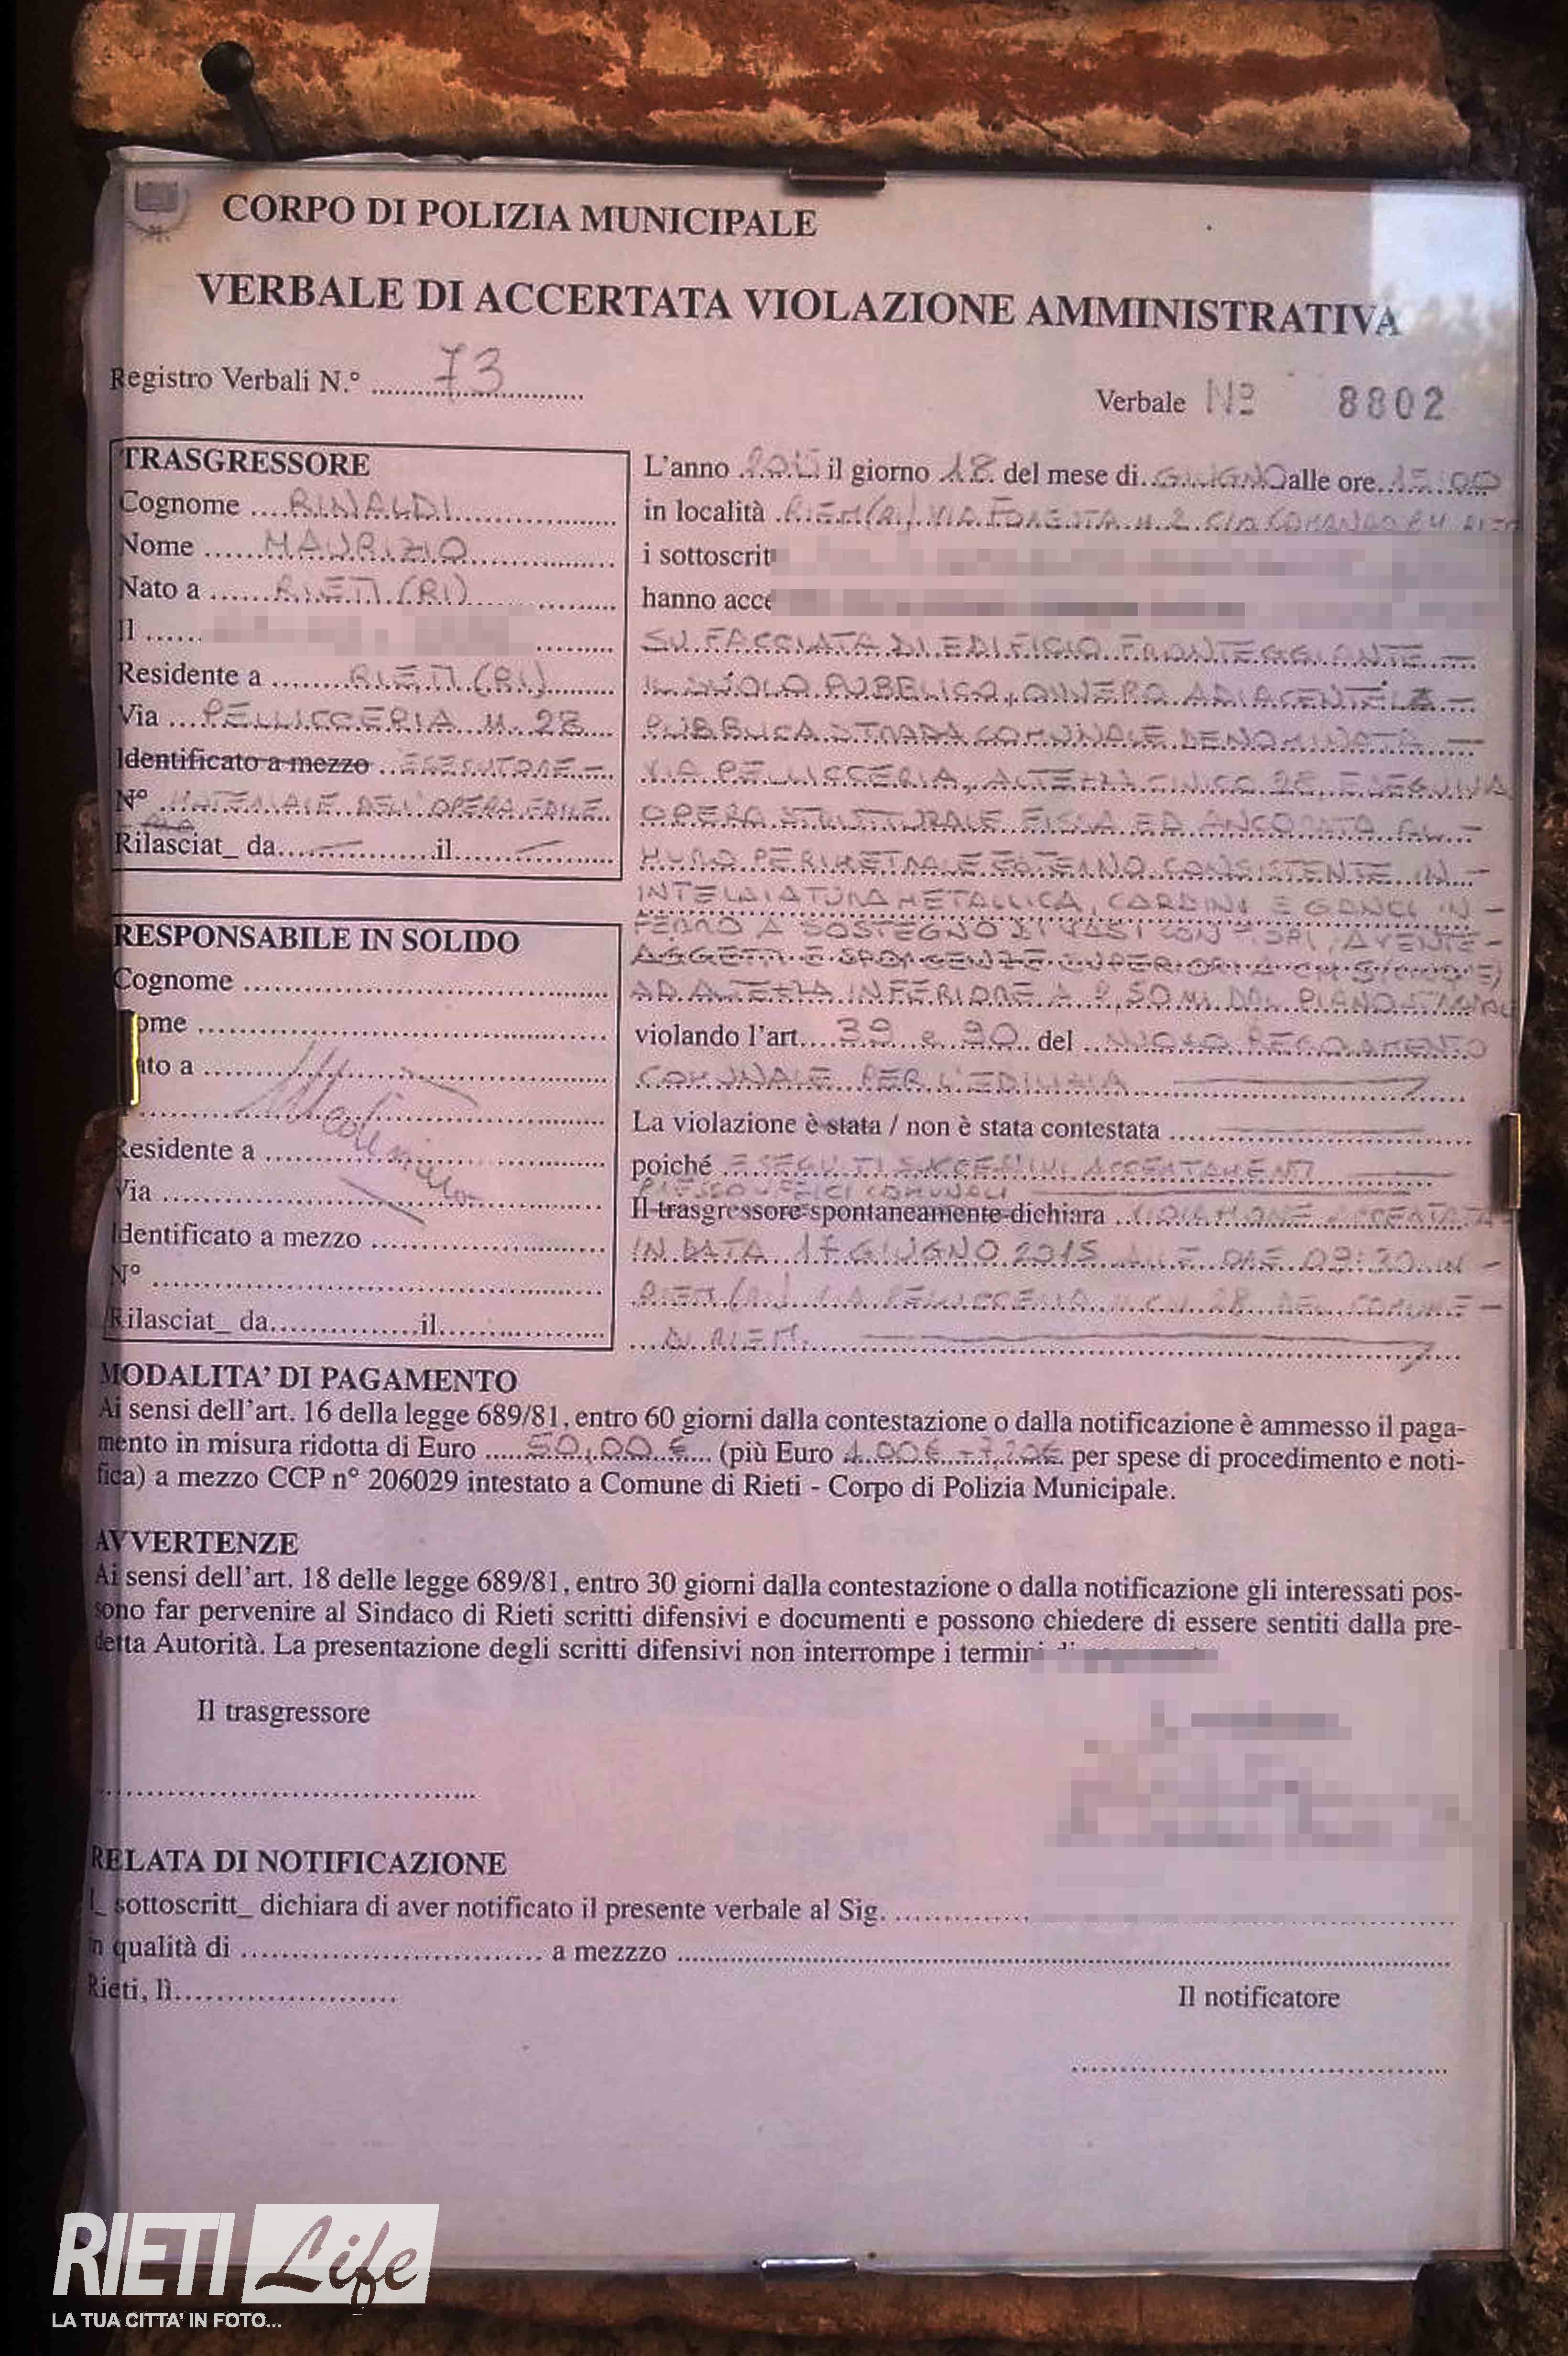 CORPO DI POLIZIA MUNICIPALE
VERBALE DI ACCERTATA VIOLAZIONE AMMINISTRATIVA
Registro Verbali N.° 73
Verbale No 8802
TRASGRESSORE
Cognome RINALDI
Nome MAURIZIO
Nato a RIETI (RI)
Il
Residente a RIETI (RI)
Via PELLICCERIA N. 28
Identificato a mezzo ESECUTORE
N° MATERIALE DELL'OPERA EDILE
Rilasciat_ da il
RESPONSABILE IN SOLIDO
Cognome
ome
ato a
Residente a
Via
Identificato a mezzo
N°
Rilasciat_ da il
L'anno 2015 il giorno 18 del mese di GIUGNO alle ore 15:00
in località RIETI (RI) VIA FORESTA N. 2 C/O COMANDO
i sottoscrit
hanno acce
SU FACCIATA DI EDIFICIO FRONTEGGIANTE
IL SUOLO PUBBLICO, OVVERO ADIACENTE LA
PUBBLICA STRADA COMUNALE DENOMINATA
VIA PELLICCERIA, ALTEZZA CIVICO 28, ESEGUIVA
OPERA STRUTTURALE FISSA ED ANCORATA AL
MURO PERIMETRALE ESTERNO CONSISTENTE IN
INTELAIATURA METALLICA, CARDINI E GANCI IN
FERRO A SOSTEGNO DI VASI CON FIORI, AVENTE
AGGETTI E SPORGENZE SUPERIORI A CM 5 (CINQUE)
AD ALTEZZA INFERIORE A 2,50 Mt. DAL PIANO STRADALE
violando l'art. 39 e 90 del NUOVO REGOLAMENTO
COMUNALE PER L'EDILIZIA
La violazione è stata / non è stata contestata
poiché ESEGUITI SUCCESSIVI ACCERTAMENTI
PRESSO UFFICI COMUNALI
Il trasgressore spontaneamente dichiara VIOLAZIONE ACCERTATA
IN DATA 17 GIUGNO 2015 ALLE ORE 09:30 IN
RIETI (RI) VIA PELLICCERIA 28 DEL COMUNE
DI RIETI.
MODALITA' DI PAGAMENTO
Ai sensi dell'art. 16 della legge 689/81, entro 60 giorni dalla contestazione o dalla notificazione è ammesso il paga-
mento in misura ridotta di Euro 50,00 € (più Euro per spese di procedimento e noti-
fica) a mezzo CCP n° 206029 intestato a Comune di Rieti - Corpo di Polizia Municipale.
AVVERTENZE
Ai sensi dell'art. 18 delle legge 689/81, entro 30 giorni dalla contestazione o dalla notificazione gli interessati pos-
sono far pervenire al Sindaco di Rieti scritti difensivi e documenti e possono chiedere di essere sentiti dalla pre-
detta Autorità. La presentazione degli scritti difensivi non interrompe i termini
Il trasgressore
RELATA DI NOTIFICAZIONE
l_ sottoscritt_ dichiara di aver notificato il presente verbale al Sig.
in qualità di a mezzzo
Rieti, lì
Il notificatore
RIETI Life
LA TUA CITTA' IN FOTO...